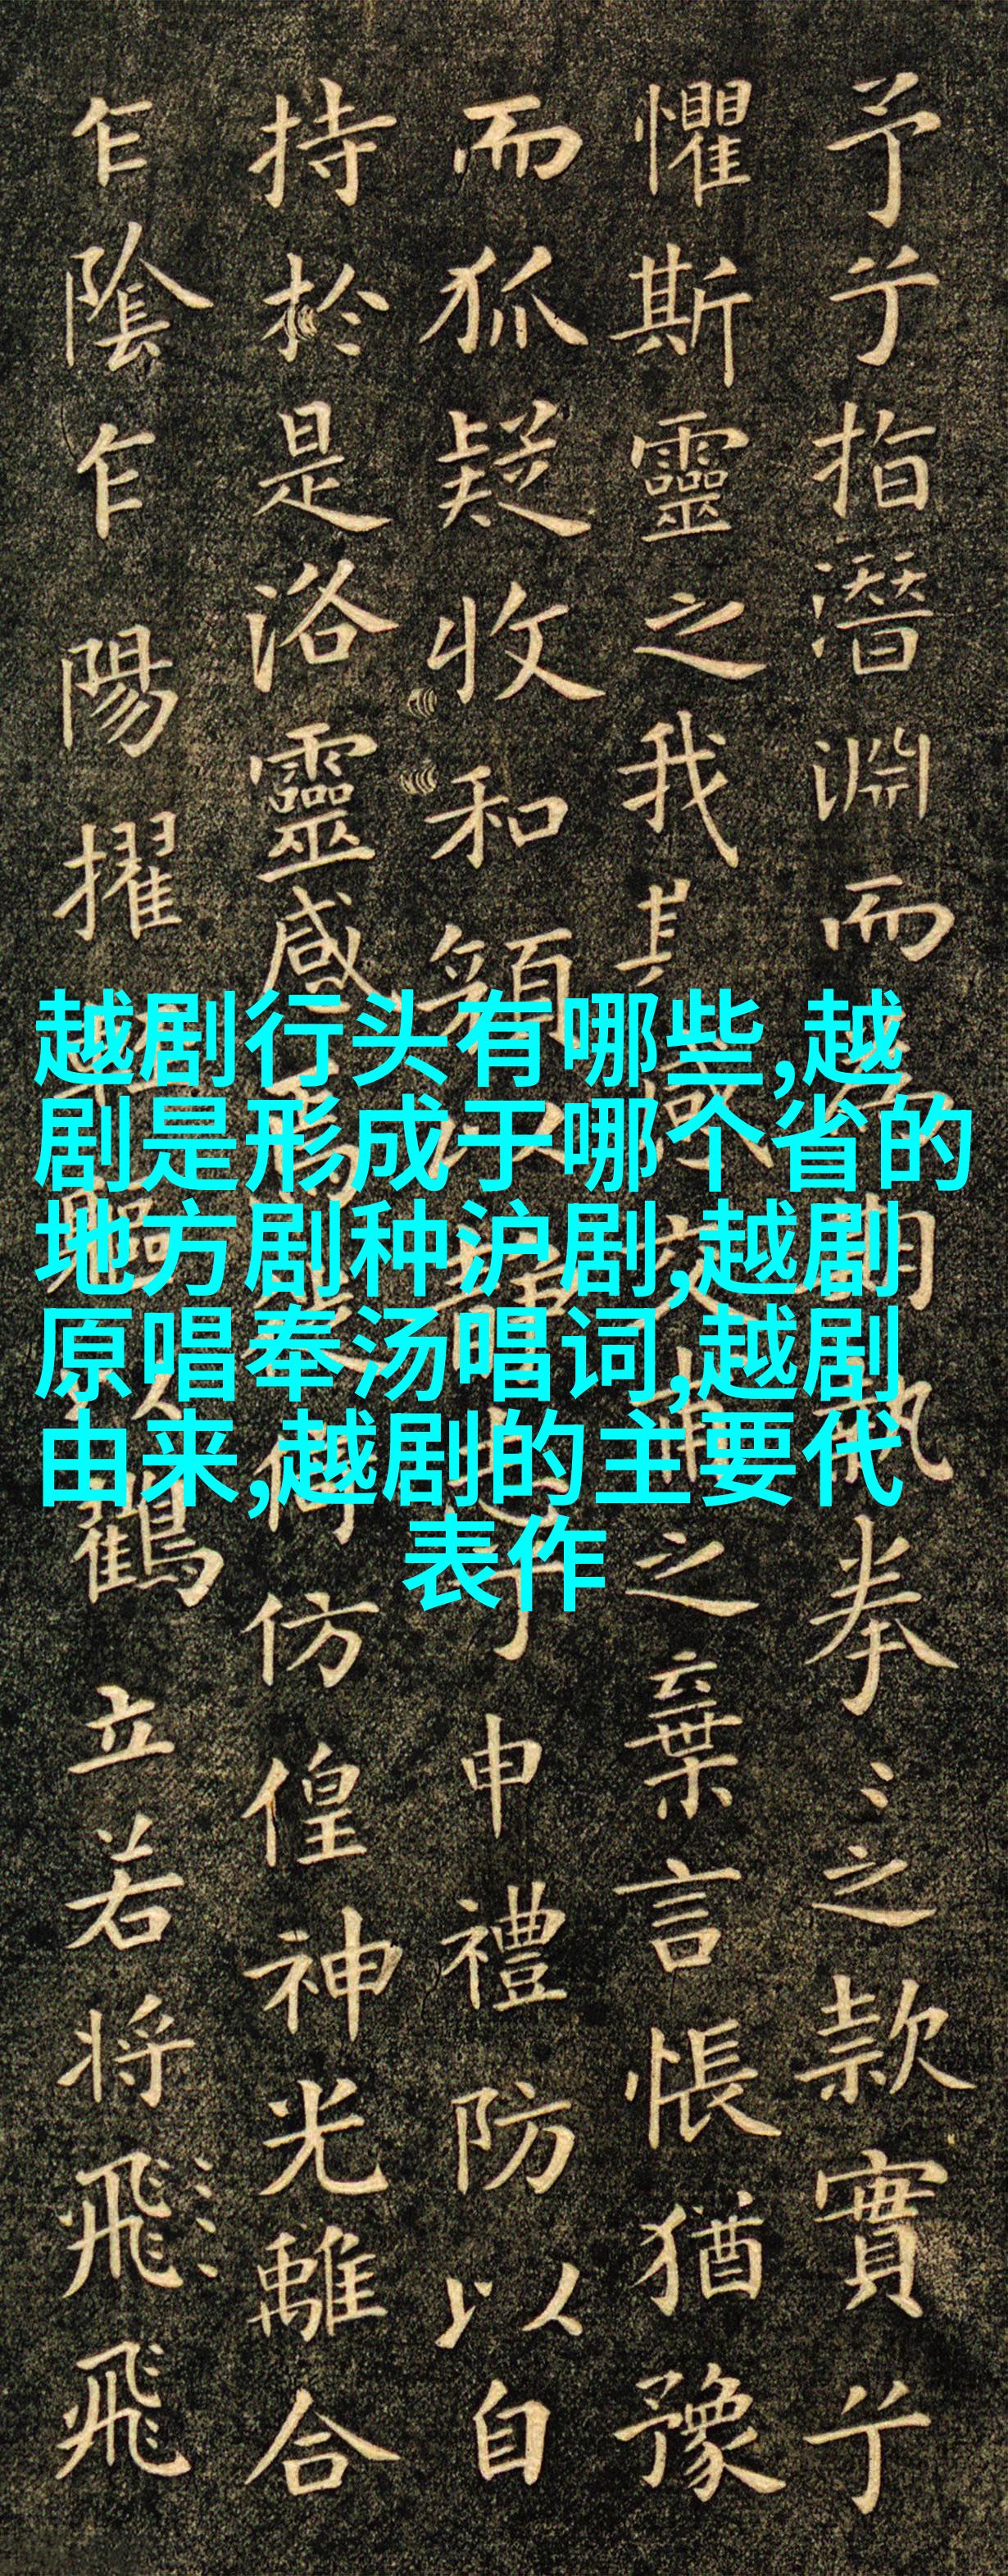 予兮指潛淵而執拳〻之款實兮
懼斯靈之我感交甫之棄言悵猶豫
而狐疑收和顏靜志兮申禮防以自
持於是洛靈感焉倚仿偟神光離合
乍陰乍陽擢軀以鶴立若將飛飛
越剧行头有哪些,越
剧是形成于哪个省的
地方剧种沪剧,越剧
原唱奉汤唱词,越剧
由来,越剧的主要代
表作